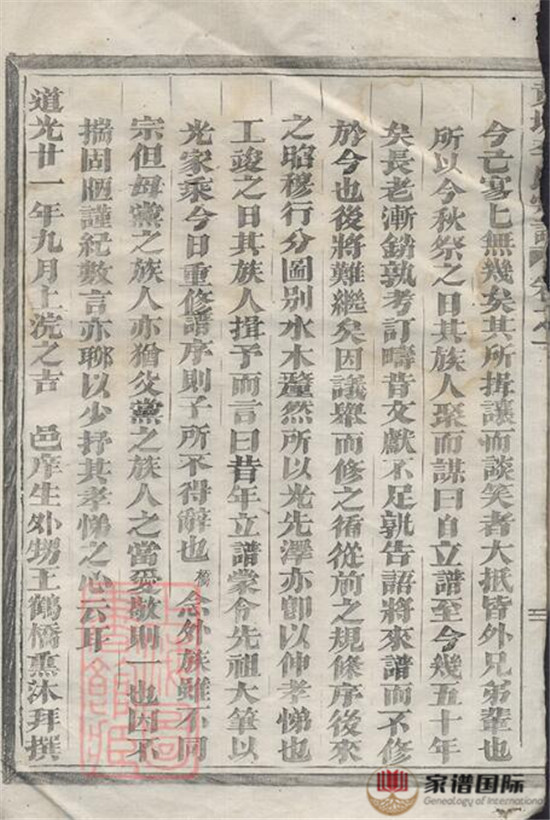 今亡寡匕無幾矣其所揖讓而談笑者大抵皆外兄弟輩也
所以今秋祭之日其族人聚而謀曰自立譜至今幾五十年
矣長老漸錯孰考訂疇昔文獻不足孰告詔將來譜而不修
於今也後將難繼矣因議舉而修之循從前之規條序後來
之昭穆行分圖別水木釐然所以光先澤亦卽以伸孝悌也
工竣之日其族人揖予而言曰昔年立譜蒙令先祖大筆以
光家乘今日重修譜序則子所不得辭也橋念外族雖不同
宗但母黨之族人亦猶父黨之族人之當愛敬則一也因不
揣固陋謹紀數言亦聊以少抒其孝悌之心云耳
道光廿一年九月上浣之吉 邑庠生外甥王鶴橋熏沐拜撰
家谱国际
Genealogy of International